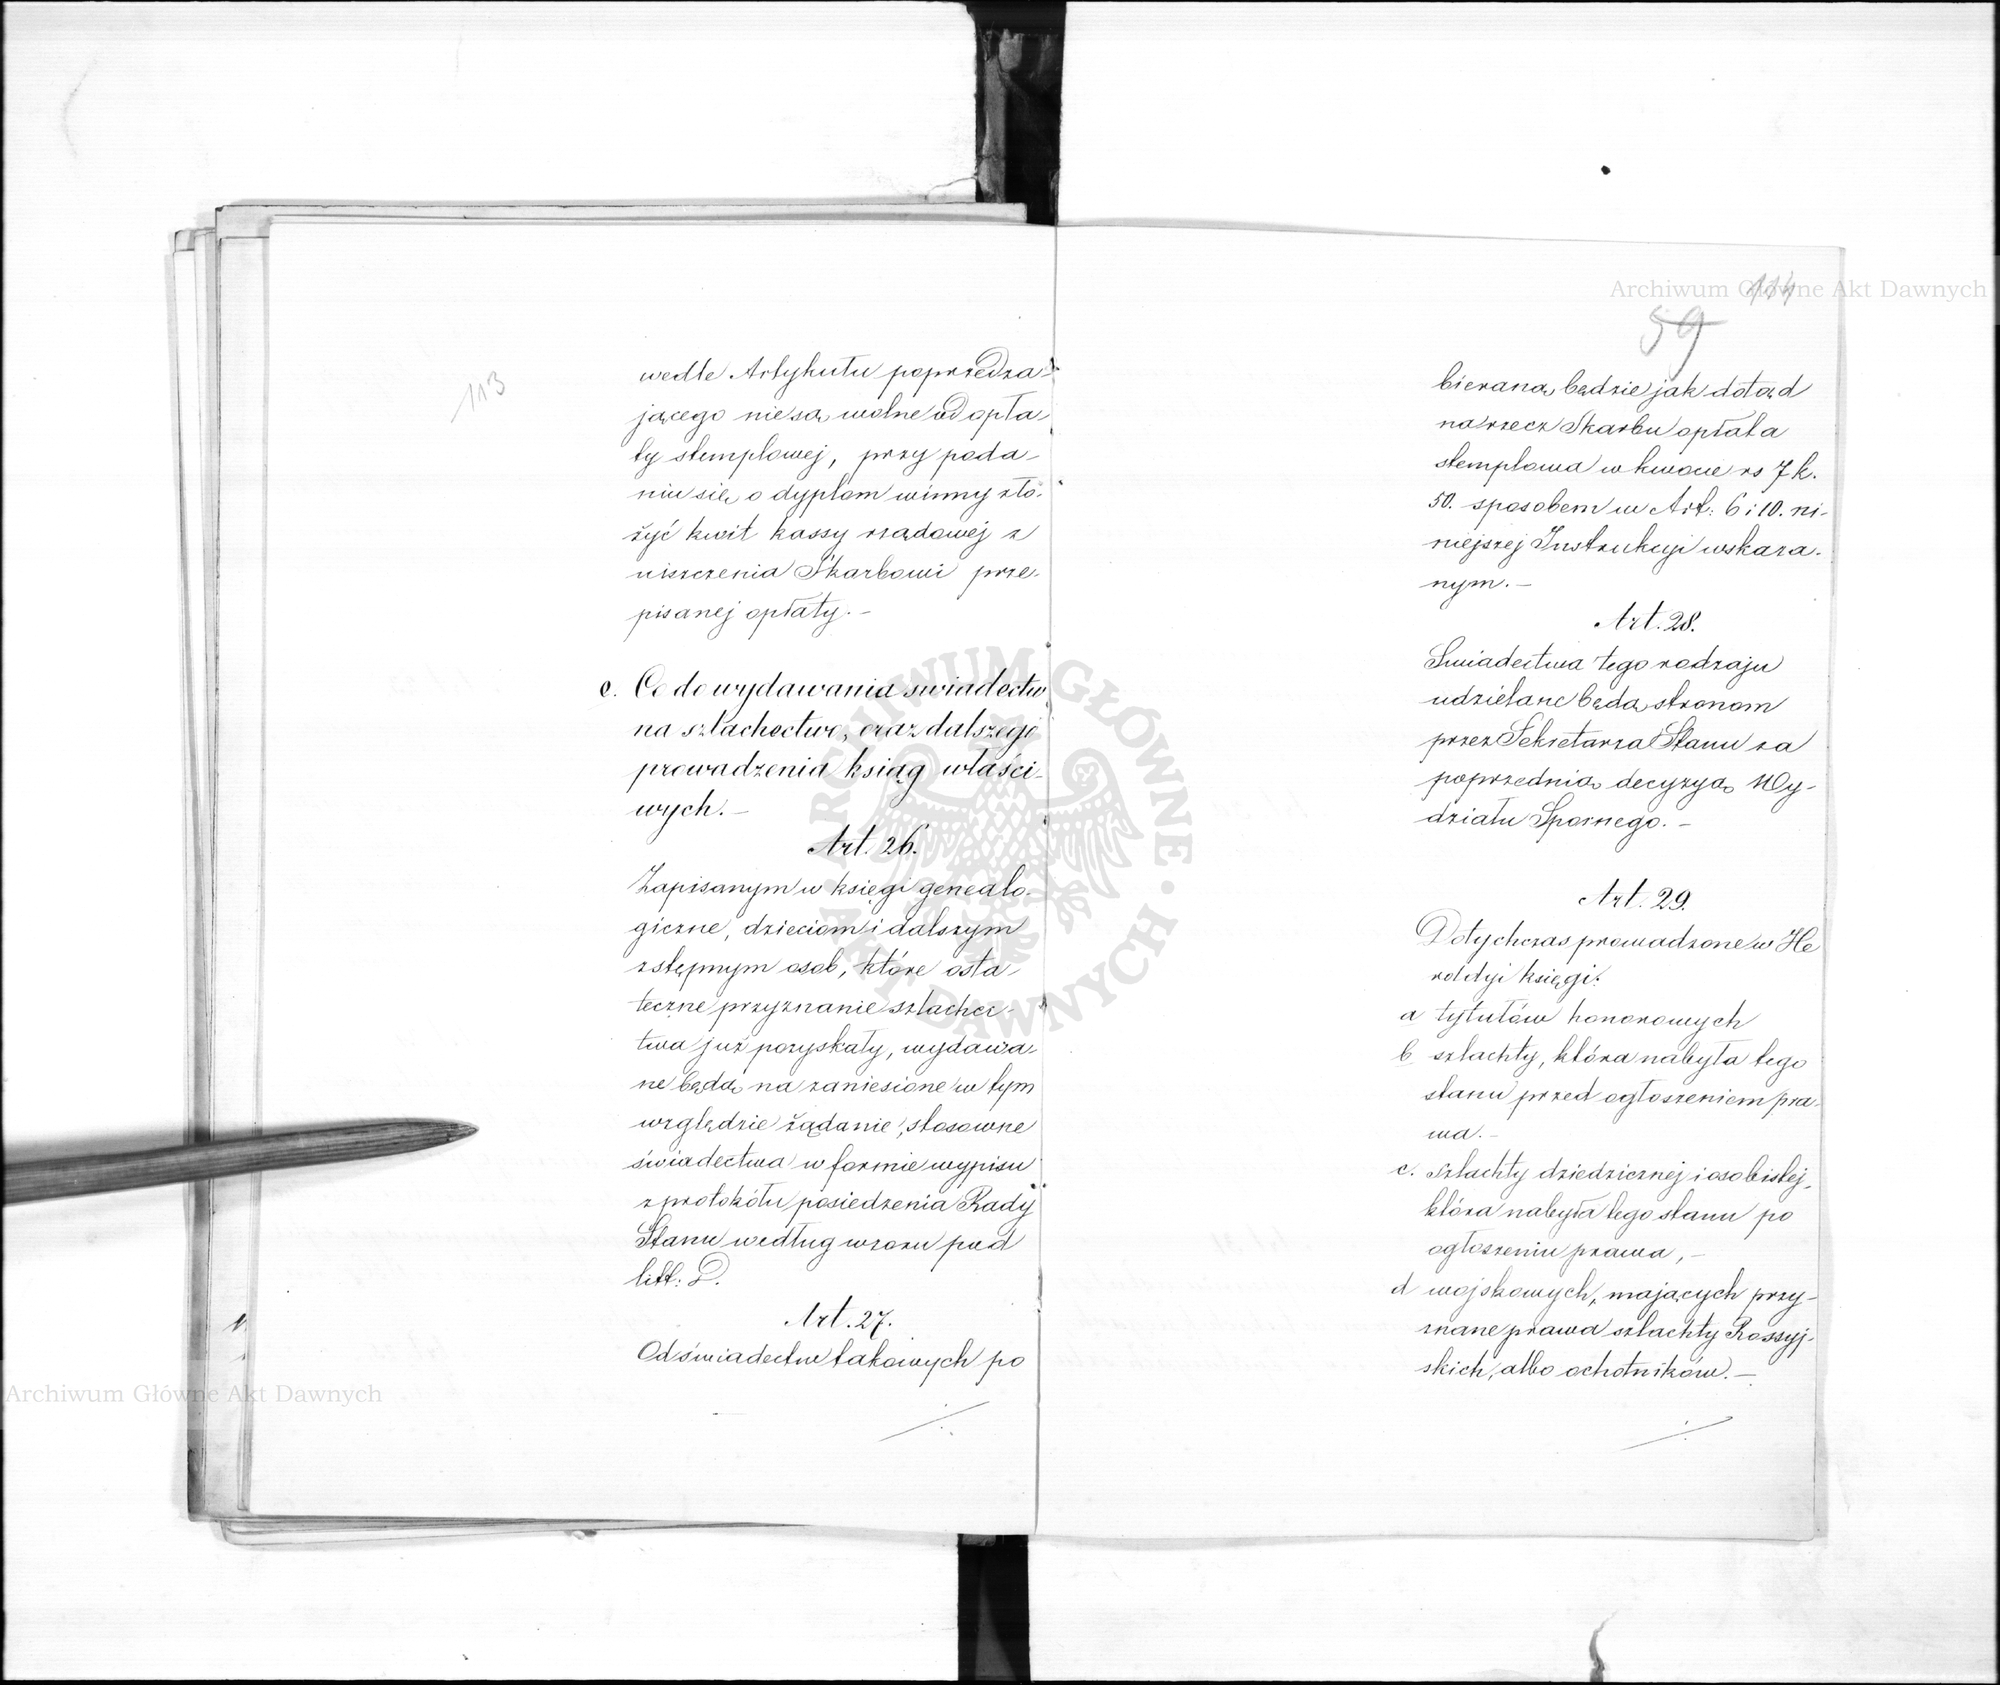 113
wedle Artykułu poprzedza-
jącego nie są wolne od opła-
ty stemplowej, przy poda-
niu się o dyplom winny zło-
żyć kwit kassy rządowej z
uiszczenia Skarbowi prze-
pisanej opłaty.-
c. Co do wydawania swiadectw
na szlachectwo, oraz dalszego
prowadzenia ksiąg właści-
wych.-
Art. 26.
Zapisanym w księgi genealo-
giczne, dzieciom i dalszym
zstępnym osob, które osta-
teczne przyznanie szlachec-
twa już pozyskały, wydawa-
ne będą na zaniesione w tym
względzie żądanie, stosowne
świadectwa w formie wypisu
z protokółu posiedzenia Rady
Stanu według wzoru pod
litt: D.
Art. 27.
Od świadectw takowych po
114
59
bierana będzie jak dotąd
na rzecz Skarbu opłata
stemplowa w kwocie rs 7 k.
50. sposobem w Art: 6 i 10. ni-
niejszej Instrukcyi wskaza-
nym.-
Art. 28.
Swiadectwa tego rodzaju
udzielane będą stronom
przez Sekretarza Stanu za
poprzednią decyzyą Wy-
działu Spornego.-
Art. 29.
Dotychczas prowadzone w He
roldyi księgi:
a tytułów honorowych
b szlachty, która nabyła tego
stanu przed ogłoszeniem pra-
wa.-
c. szlachty dziedzicznej i osobistej,
która nabyła tego stanu po
ogłoszeniu prawa,-
d wojskowych, mających przy-
znane prawa szlachty Rossyj-
skich, albo ochotników.-
Archiwum Główne Akt Dawnych
Archiwum Główne Akt Dawnych
ARCHIWUM GŁÓWNE AKT DAWNYCH